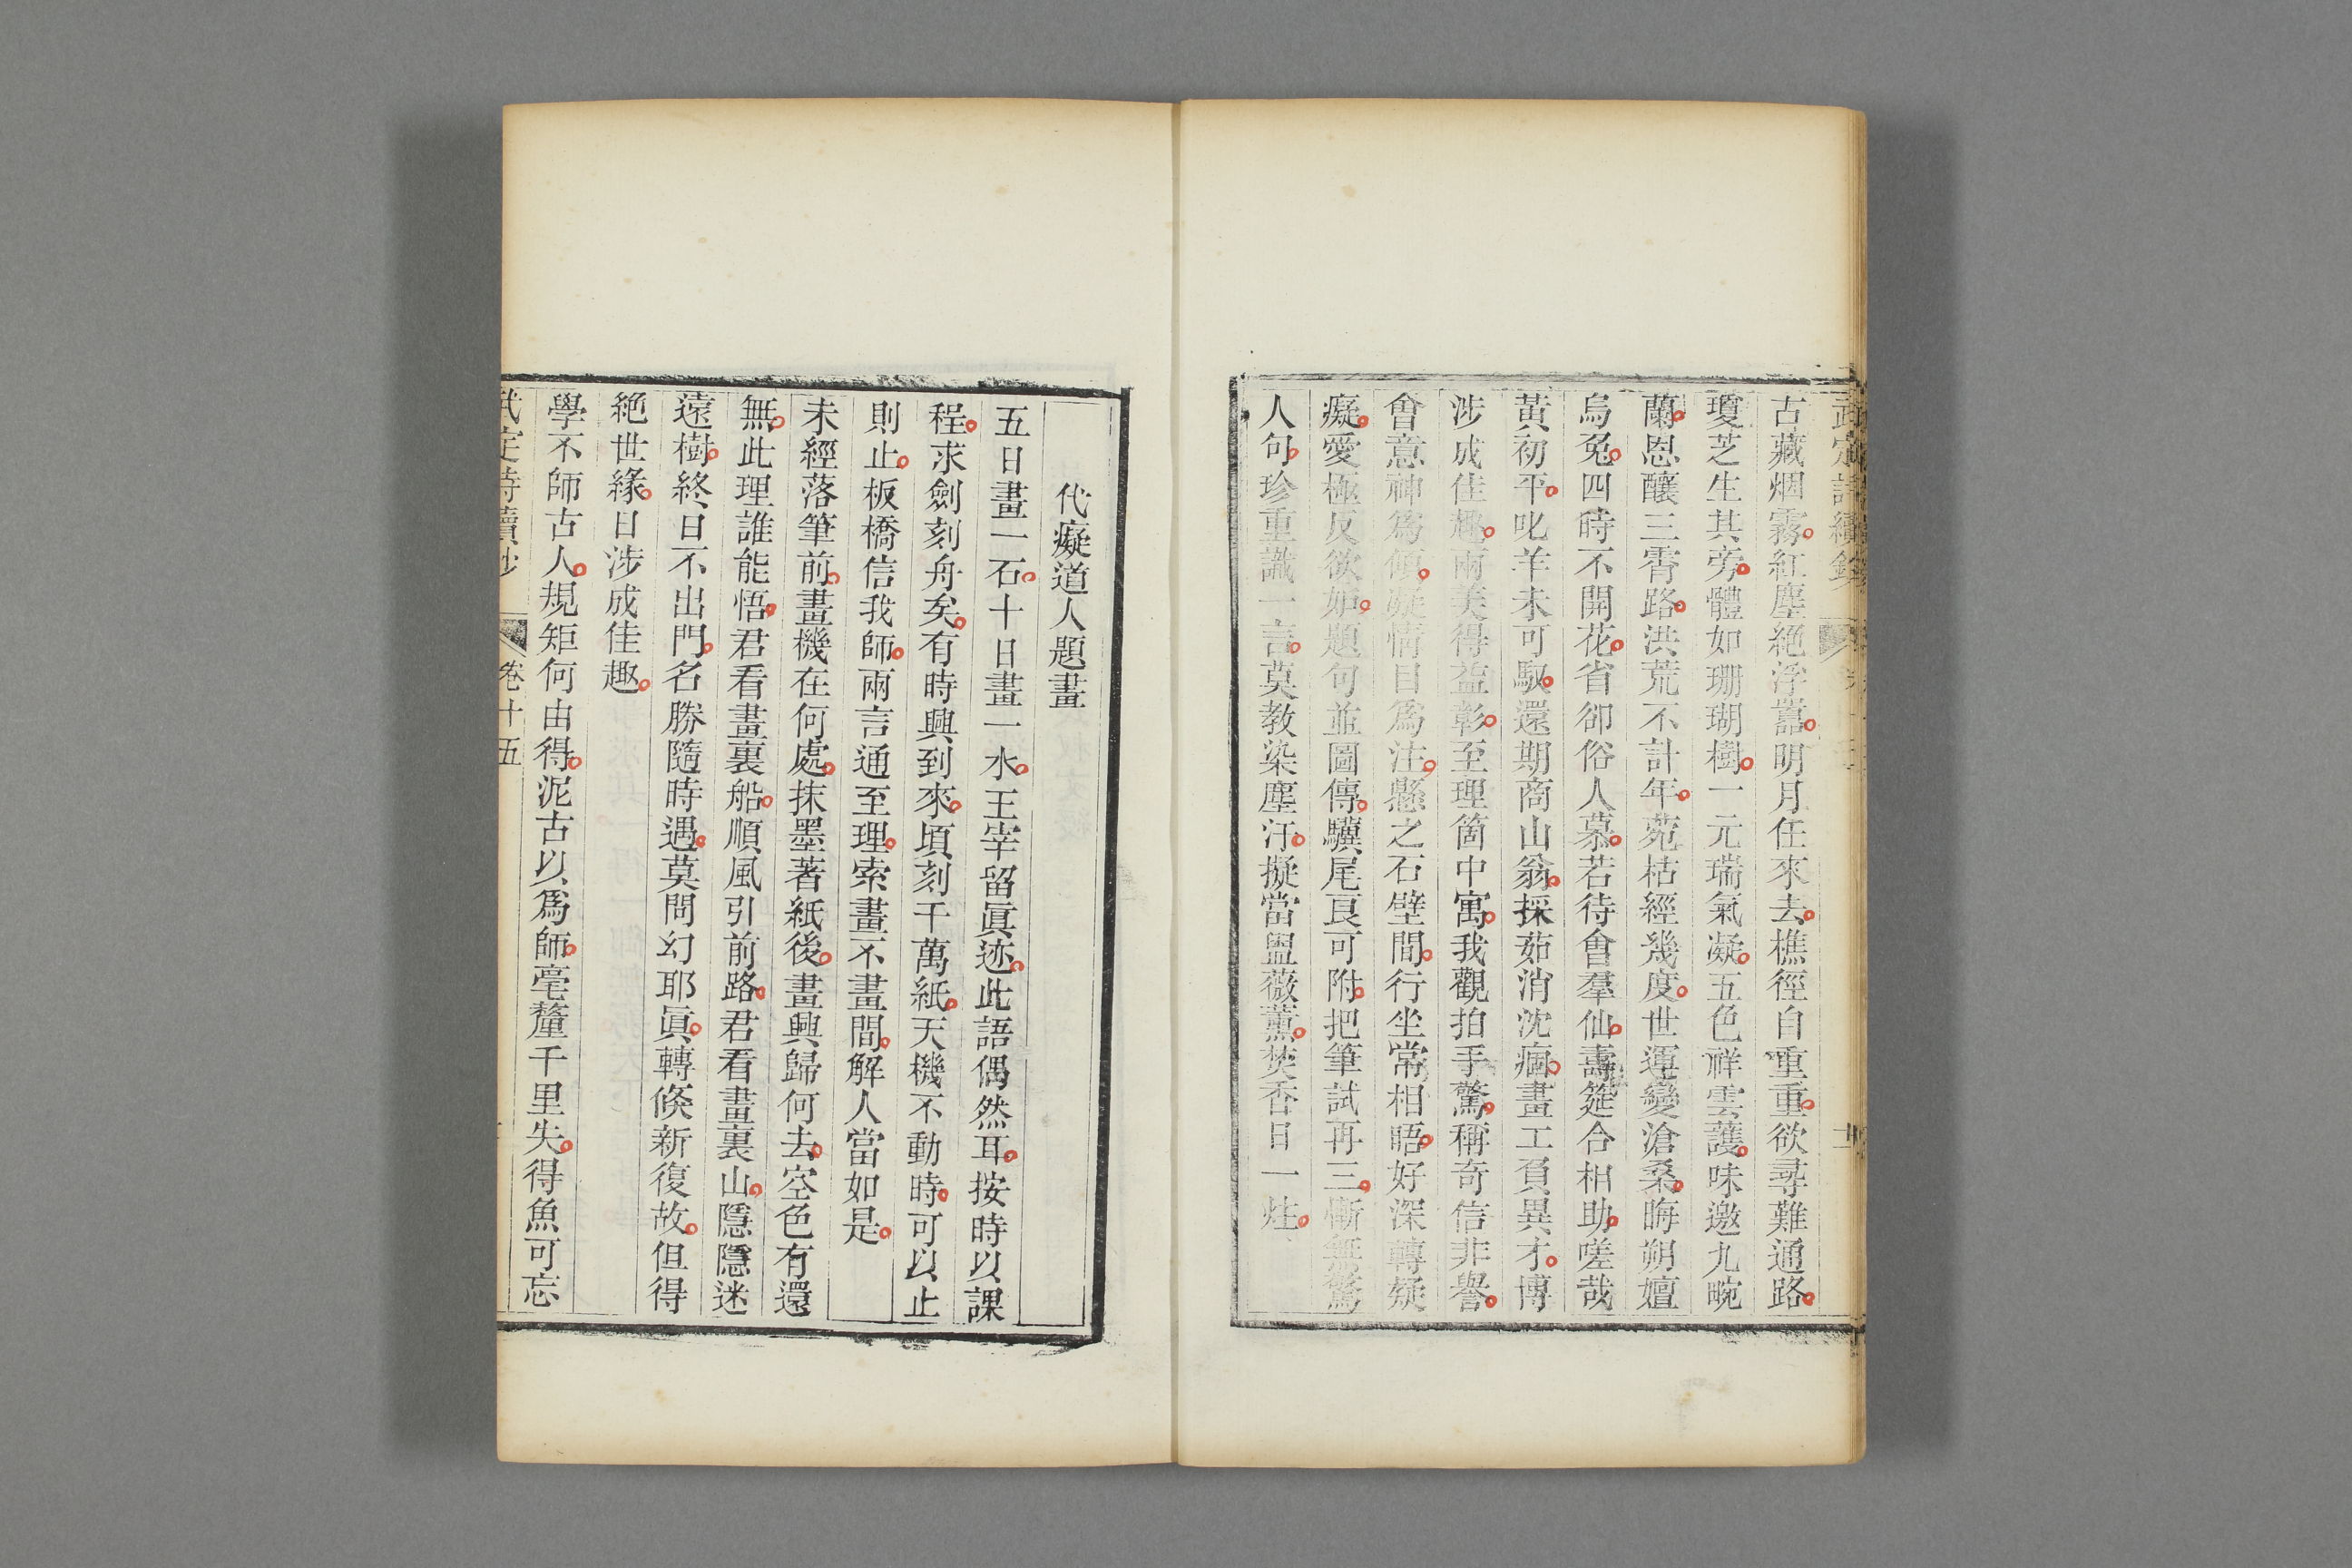 武定詩續鈔
古藏烟霧紅塵絕浮囂明月任來去樵徑自重重欲尋難通路
瓊芝生其旁體如珊瑚樹一元瑞氣凝五色祥雲護味邀九畹
蘭恩釀三霄路洪荒不計年菀枯經幾度世運變滄桑晦朔嬗
烏兔四時不開花省卻俗人慕若待會羣仙壽筵合相助嗟哉
黃初平叱羊未可馭還期商山翁採茹消沈痼畫工負異才博
涉成佳趣兩美得益彰至理箇中寓我觀拍手驚稱奇信非譽
會意神為傾凝情目為注懸之石壁間行坐常相晤好深轉疑
癡愛極反欲妒題句並圖傳驥尾良可附把筆試再三慚無驚
人句珍重識一言莫教染塵汗擬當盥薇薰焚香日一炷
代癡道人題畫
五日畫一石十日畫一水王宰留眞迹此語偶然耳按時以課
程求劍刻舟矣有時興到來頃刻千萬紙天機不動時可以止
則止板橋信我師兩言通至理索畫不畫間解人當如是
未經落筆前畫機在何處抹墨著紙後畫興歸何去空色有還
無此理誰能悟君看畫裏船順風引前路君看畫裏山隱隱迷
遠樹終日不出門名勝隨時遇莫問幻耶眞轉倐新復故但得
絕世緣日涉成佳趣
學不師古人規矩何由得泥古以爲師毫釐千里失得魚可忘
武定詩續鈔 卷十五